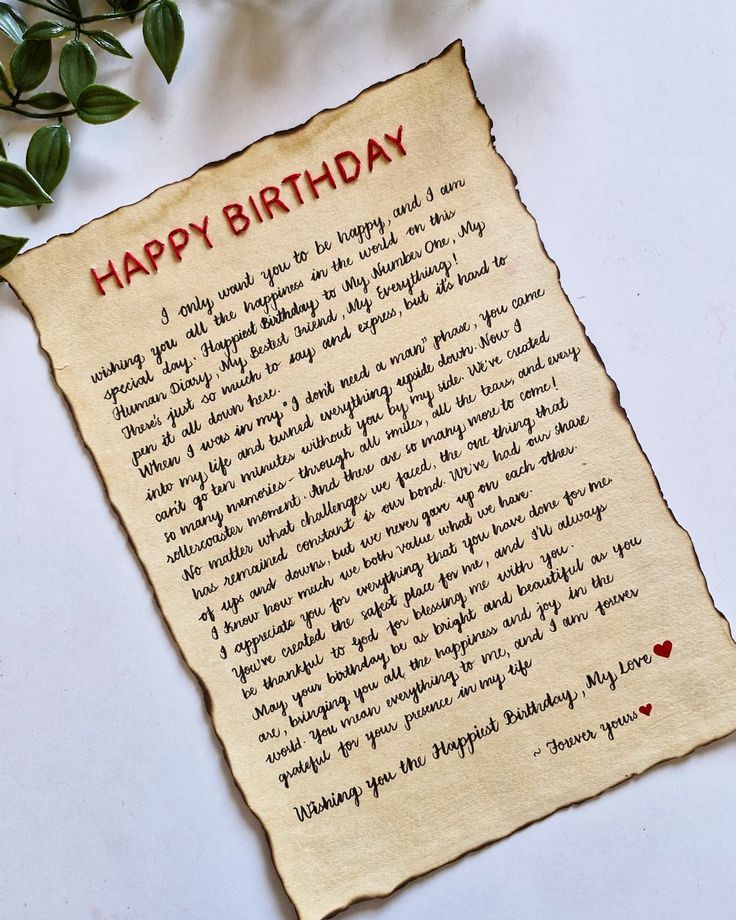 HAPPY BIRTHDAY
I only want you to be happy, and I am
wishing you all the happiness in the world on this
special day. Happiest Birthday to My Number One, My
Human Diary, My Bestest Friend, My Everything!
There's just so much to say and express, but it's hard to
pen it all down here.
When I was in my "I don't need a man" phase, you came
into my life and turned everything upside down. Now I
can't go ten minutes without you by my side. We've created
so many memories - through all smiles, all the tears, and every
rollercoaster moment. And there are so many more to come!
No matter what challenges we faced, the one thing that
has remained constant is our bond. We've had our share
of ups and downs, but we never gave up on each other.
I know how much we both value what we have.
I appreciate you for everything that you have done for me.
You've created the safest place for me, and I'll always
be thankful to God for blessing me with you.
May your birthday be as bright and beautiful as you
are, bringing you all the happiness and joy in the
world. You mean everything to me, and I am forever
grateful for your presence in my life
Wishing you the Happiest Birthday, My Love ♥
~ Forever yours ♥